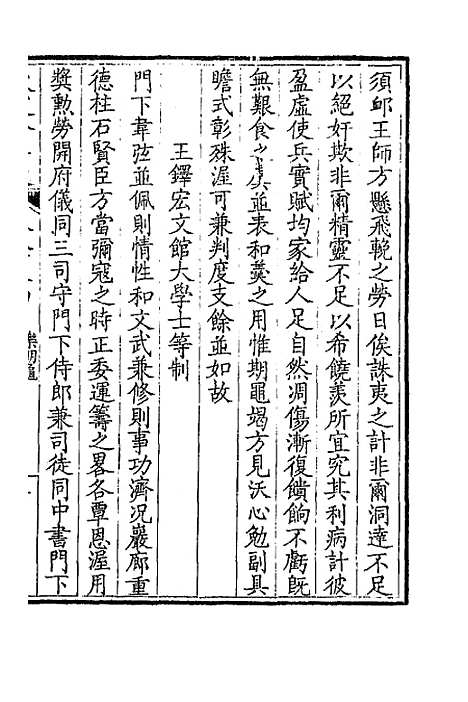 須邮王師方懸飛輓之勞日俟誅夷之計非爾洞達不足
以絕奸欺非爾精靈不足以希饒羨所宜究其利病計彼
盈虛使兵實賦均家給人足自然凋傷漸復饋餉不虧旣
無艱食之㳟並表和羹之用惟期黽竭方見沃心勉副具
瞻式彰殊渥可兼判度支餘並如故
王鐸宏文館大學士等制
門下韋弦並佩則情性和文武兼修則事功濟况巖廊重
德柱石賢臣方當彌寇之時正委運籌之畧各覃恩渥用
奬勲勞開府儀同三司守門下侍郎兼司徒同中書門下
樂朋龜